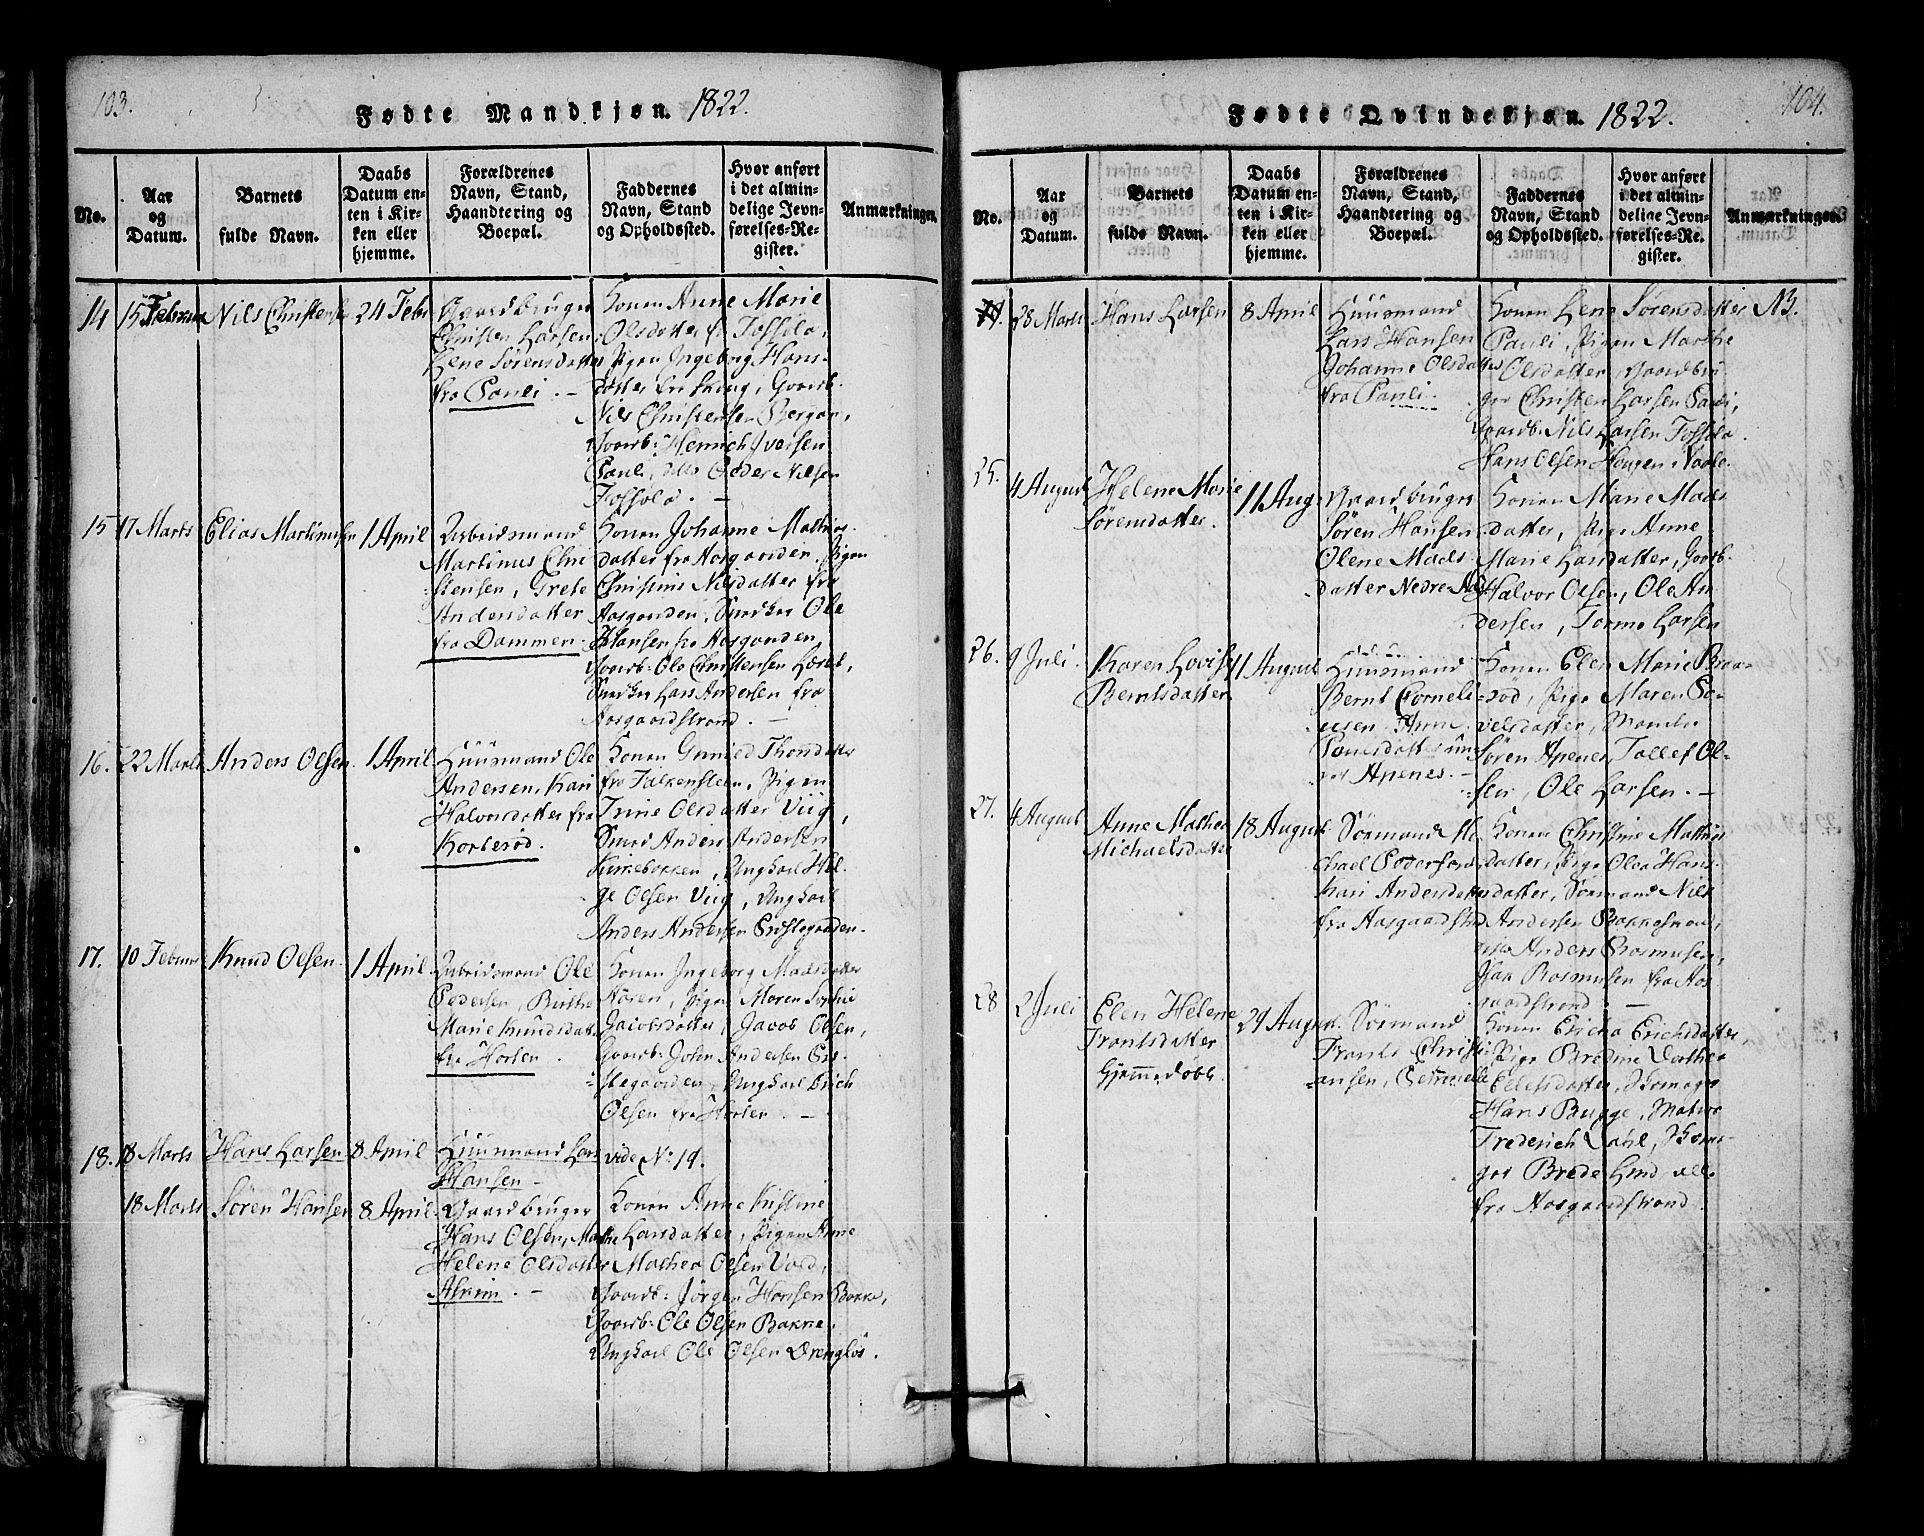 103.
Fødte Mandkjøn. 1822.
No.
Aar og Datum.
Barnets fulde Navn.
Daabs Datum enten i Kirken eller hjemme.
Forældrenes Navn, Stand, Haandtering og Boepæl.
Faddernes Navn, Stand og Opholdssted.
Hvor anført i det almindelige Jevnførelses-Register.
Anmærkninger.
14 15 Februar Nils Christensen 24 Febr
Gaardbruger
Christen Larsen
Lene Sørensdatter
fra Pauli. -
Konen Anne Marie
Olsdatter fr Fossilo,
Pigen Ingeborg Hans-
datter fra Skoug, Gaarb.
Nils Christensen Bergan,
Gaarb: Henrich Iversen
Pauli, Peder Nilsen
Fossolo. -
15 17 Marts Elias Martinusen 1 April
Arbeidsmand
Martinus Chri
stensen, Grete
Andersdatter
fra Dammen
Konen Johanne Mathias
datter fra Aasgaarden, Pigen
Christine Nilsdatter fra
Aasgaarden, Snedker Ole
Hansen fra Aasgaarden,
Gaarb: Ole Christensen
Snedker Lars Andersen fra
Aasgaardstrand. -
16. 22 Marts Anders Olsen. 1 April
Huusmand Ole
Andersen, Kari
Halvorsdatter fra
Konen Thordatter
fra Falkensteen, Pigen
Trine Olsdatter Viig,
Smed Anders Andersen
Kirkebakken, Ungkarl Hel-
ge Olsen Viig, Ungkarl
Anders Andersen
17. 10 Februar Knud Olsen. 1 April
Arbeidsmand Ole
Pedersen, Birthe
Marie Knudsdatter
fra Horten.
Konen Ingeborg Madsdatter
Pigen Maren Sophie
Jacobsdatter, Jacob Olsen,
Gaarb: John Andersen
Ungkarl Erich
Olsen fra Horten. -
18. 18 Marts Hans Larsen 8 April
Huusmand Lars
Hansen -
vide No 19.
18 Marts Søren Hansen 8 April.
Gaardbruger
Hans Olsen,
Helene Olsdatter
-
Konen Anne Kirstine
Larsdatter, Pigen Anne
Mathea Olsen Vold,
Gaarb: Jørgen Hansen Bakke,
Gaarb: Ole Olsen Bakke.
Ungkarl Ole Olsen
104.
Fødte Qvindekjøn. 1822.
No.
Aar og Datum.
Barnets fulde Navn.
Daabs Datum enten i Kirken eller hjemme.
Forældrenes Navn, Stand, Haandtering og Boepæl.
Faddernes Navn, Stand og Opholdssted.
Hvor anført i det almindelige Jevnførelses-Register.
Anmærkninger.
28 Marts Hans Larsen 8 April
Huusmand
Lars Hansen
Johanne Olsdatter
fra Pauli.
Konen Lene Sørensdatter NB.
Pauli, Pigen Marthe
Olsdatter, Gaardbru
ger Christen Larsen Pauli,
Gaarb: Nils Larsen Fossolo.
Hans Olsen Hougen
25. 4 August Helene Marie
Sørensdatter. 11 Aug:
Gaardbruger
Søren Hansen
Olene Mads
datter Nedre
Konen Marie Mads
datter, Pige Anne
Marie Larsdatter, Gaarb-
Halvor Olsen, Ole An
dersen, Larsen
26. 9 Juli. Karen Lovise
Berntsdatter 11 August
Huusmand
Bernt Corneli
usen,
Apenes. -
Konen Elen Marie
Pige Maren Po-
velsdatter,
Søren Apenes, Tollef Ol-
sen, Ole Larsen. -
27. 4 August Anne Mathea
Michaelsdatter 18 August.
Sømand Mi
chael Pedersen
Kari Andersdatter
fra Aasgaardstrand
Konen Christine Mathias
datter, Pige Olea Hans-
datter, Sømand Nils
Andersen
Anders Rasmusen,
Rasmusen fra Aas
gaardstrand -
28 2 Juli Elen Helene
Frantsdatter
hjemmedøbt. 29 August.
Sømand
Frants Christi
ansen,
Konen Ericha Erichsdatter,
Pige Dorthea
Skomager
Hans Bugge, Matros
Frederich Dahl,
Brede Lind alle
fra Aasgaardstrand